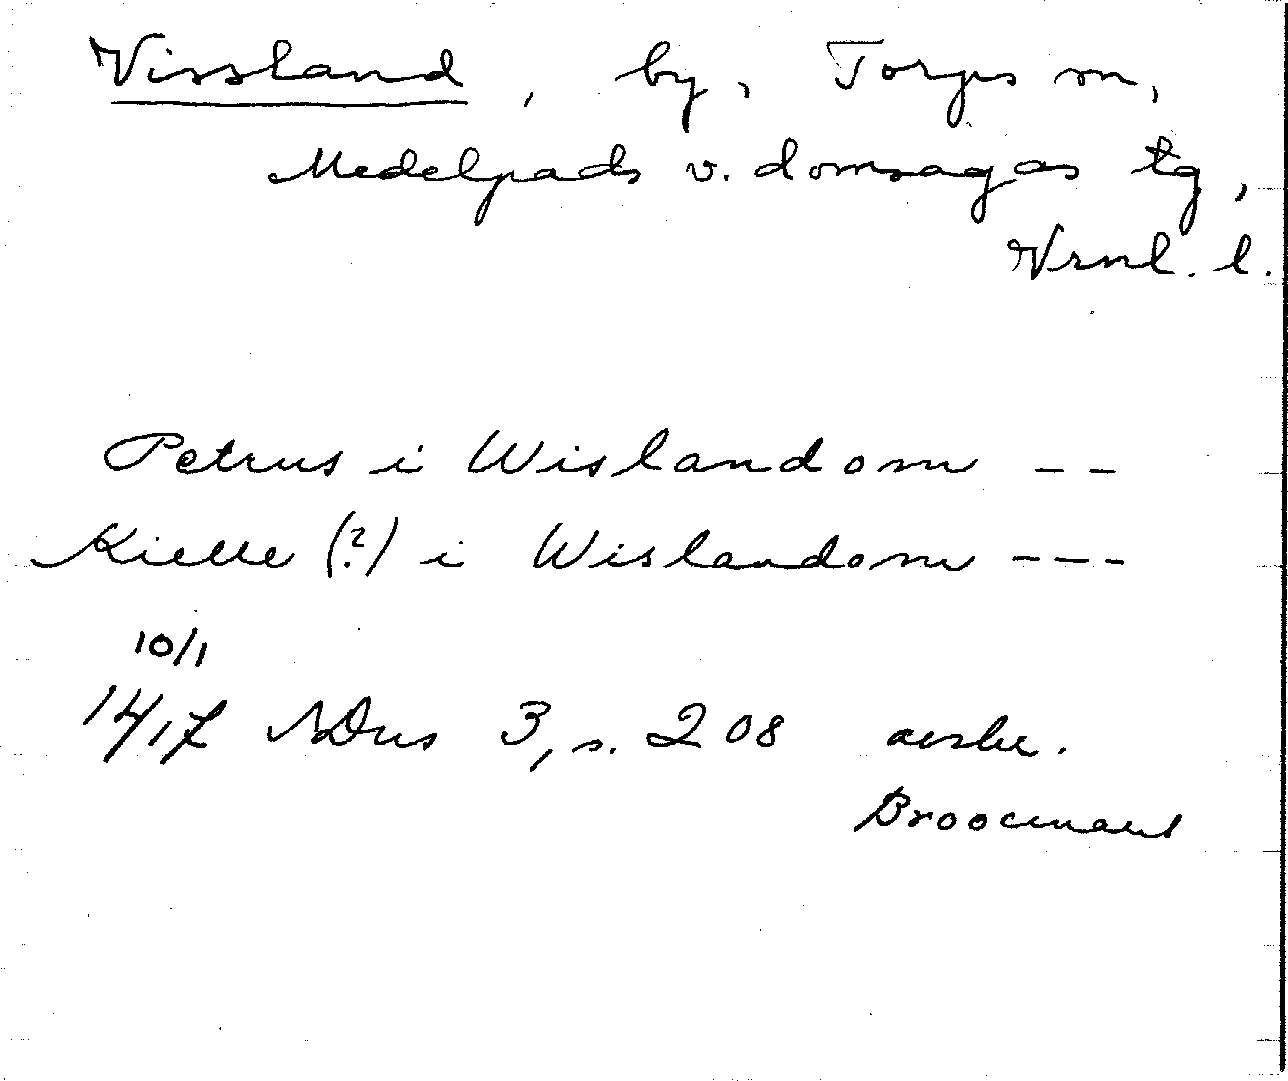 Vissland, by, Torps sn,
Medelpads v. domsagas tg,
Vrnl. l.
Petrus i Wislandom --
Kielle (?) i Wislandom ---
10/1
1417 NDns 3, s. 208 avskr.
Broocmans